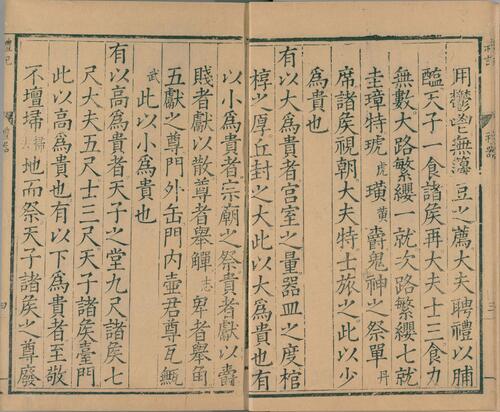 用鬱鬯無籩豆之薦大夫聘禮以脯
醢天子一食諸矦再大夫士三食力
無數大路繁纓一就次路繁纓七就
圭璋特琥虎璜黃爵鬼神之祭單丹
席諸矦視朝大夫特士旅之此以少
爲貴也
有以大爲貴者宮室之量器皿之度棺
椁之厚丘封之大此以大爲貴也有
以小爲貴者宗廟之祭貴者獻以爵
賤者獻以散尊者舉觶志卑者舉角
五獻之尊門外缶門內壺君尊瓦甒
武此以小爲貴也
有以高爲貴者天子之堂九尺諸矦七
尺大夫五尺士三尺天子諸矦臺門
此以高爲貴也有以下爲貴者至敬
不壇埽掃去地而祭天子諸矦之尊廢
禮記
禮器
四